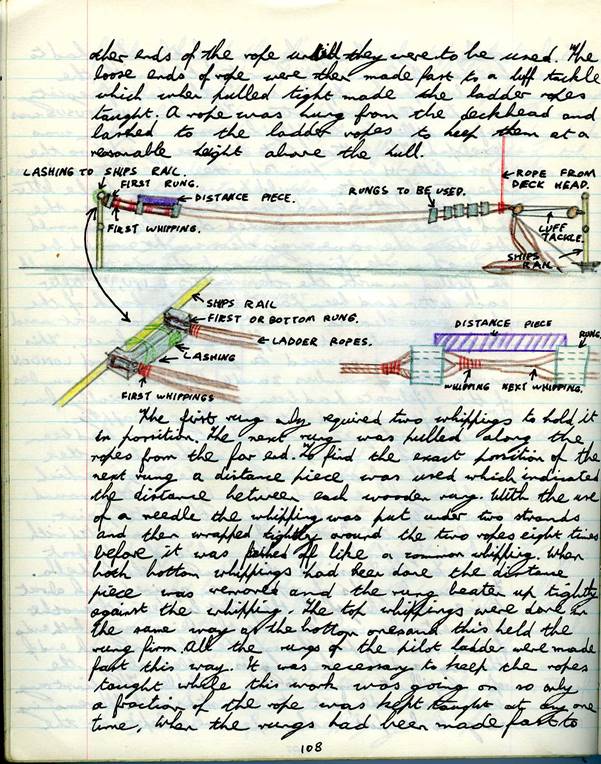 other ends of the rope untill they were to be used. The
loose ends of rope were then made fast to a luff tackle
which when pulled tight made the ladder ropes
taught. A rope was hung from the deckhead and
lashed to the ladder ropes to keep them at a
reasonable height above the hull.
LASHING TO SHIPS RAIL.
FIRST RUNG.
DISTANCE PIECE.
RUNGS TO BE USED.
ROPE FROM
DECK HEAD.
FIRST WHIPPING.
LUFF
TACKLE.
SHIPS
RAIL
SHIPS RAIL
FIRST OR BOTTOM RUNG.
LADDER ROPES.
LASHING
FIRST WHIPPINGS
DISTANCE PIECE
RUNG.
WHIPPING
NEXT WHIPPING.
The first rung only required two whippings to hold it
in porsition. The next rung was pulled along the
ropes from the far end. To find the exact porsition of the
next rung a distance piece was used which indicated
the distance between each wooden rung. With the use
of a needle the whipping was put under two strands
and then wrapped tightly around the two ropes eight times
before it was finished off like a common whipping. When
both bottom whippings had been done the distance
piece was removed and the rung beaten up tightly
against the whipping. The top whippings were done in
the same way as the bottom ones and this held the
rung firm. All the rungs of the pilot ladder were made
fast this way. It was necessary to keep the ropes
taught while this work was going on so only
a fraction of the rope was kept taught at any one
time, When the rungs had been made fast to
108